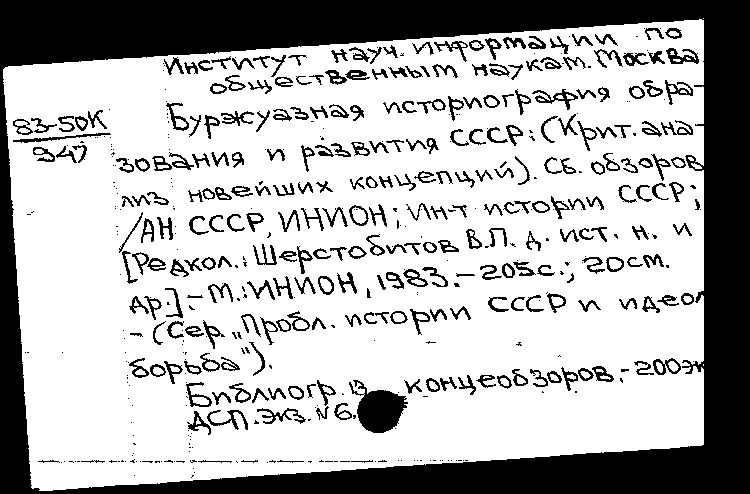 Институт науч. информации по
общественным наукам. Москва
83-50К
947
Буржуазная историография обра-
зования и развития СССР: (Крит. ана-
лиз новейших концепций). Сб. обзоров
/АН СССР, ИНИОН; Ин-т истории СССР;
[Редкол.: Шерстобитов В.П. д. ист. н. и
др.].- М.: ИНИОН, 1983.- 205с.; 20см.
- (Сер. "Пробл. истории СССР и идеол
борьба").
Библиогр. в конце обзоров.- 200 эк
ДСП. Экз. N 6.